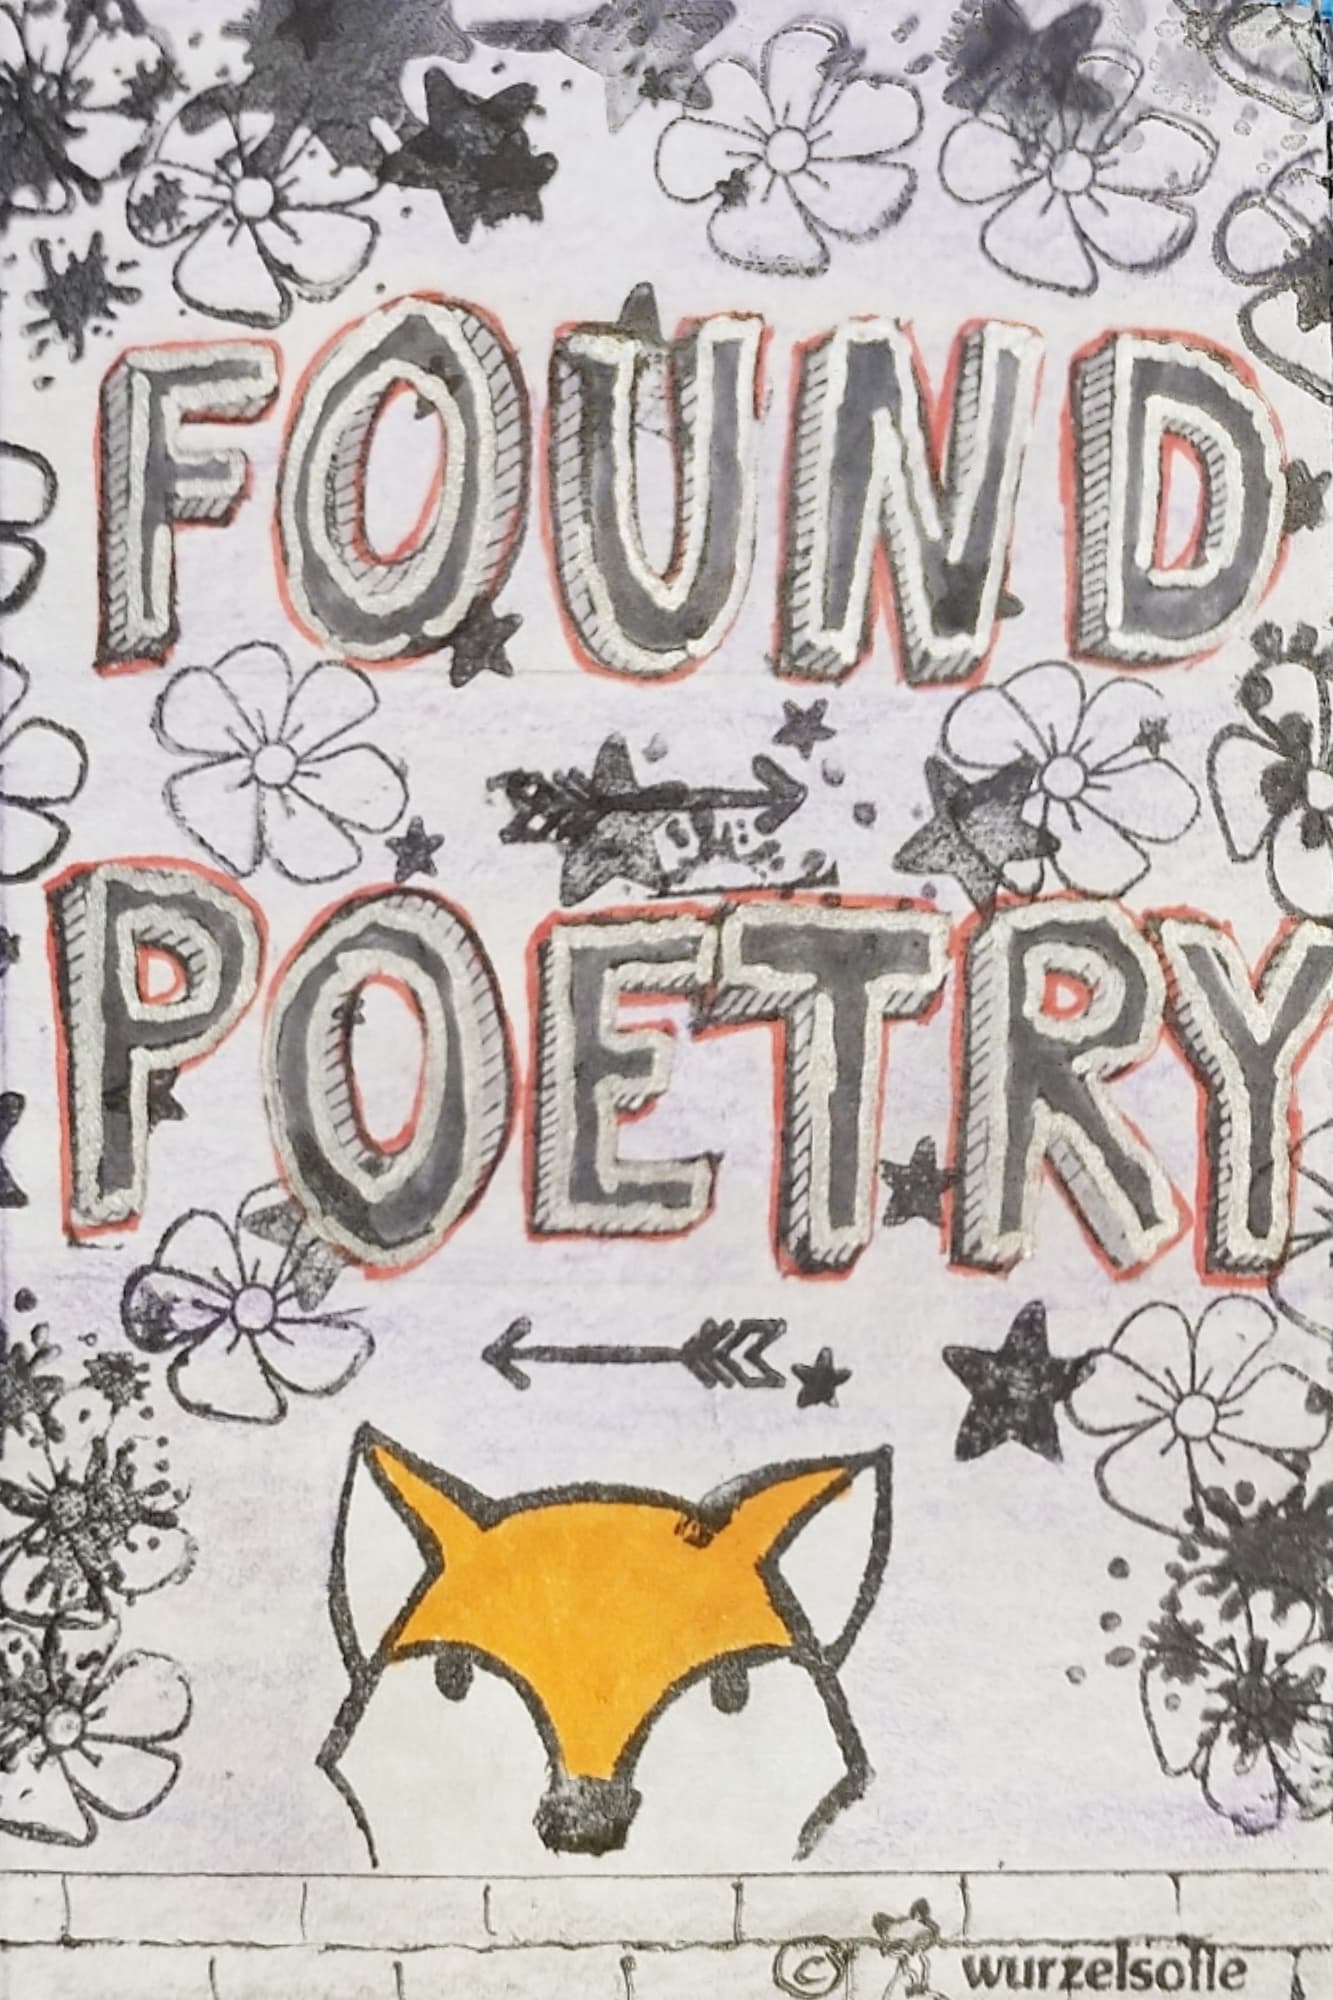 FOUND
POETRY
© wurzelsofie